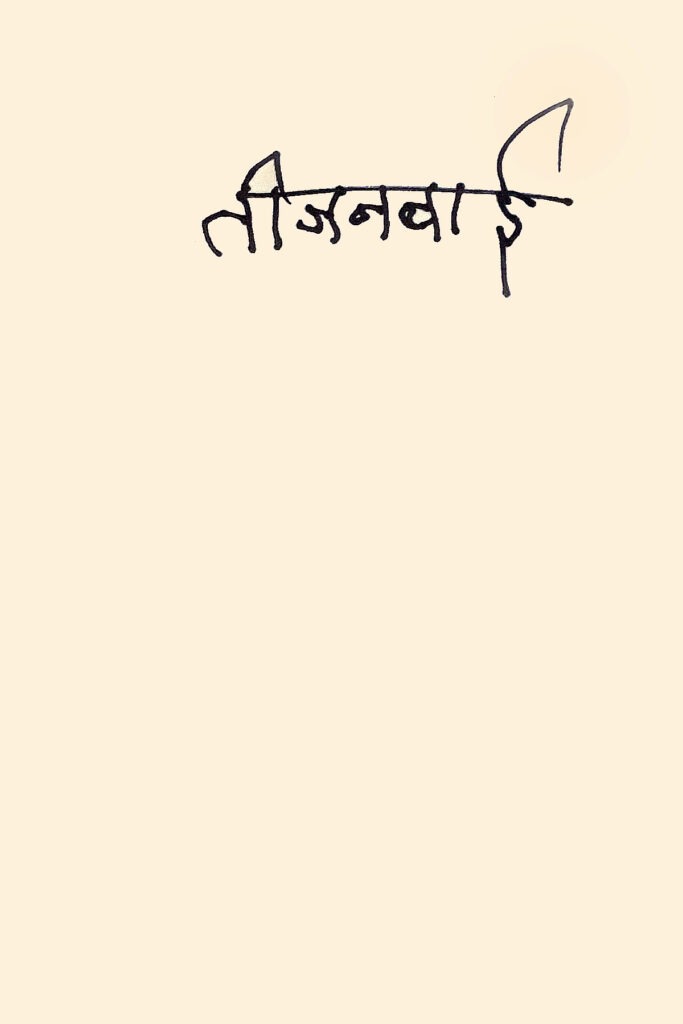 तीजनबाई